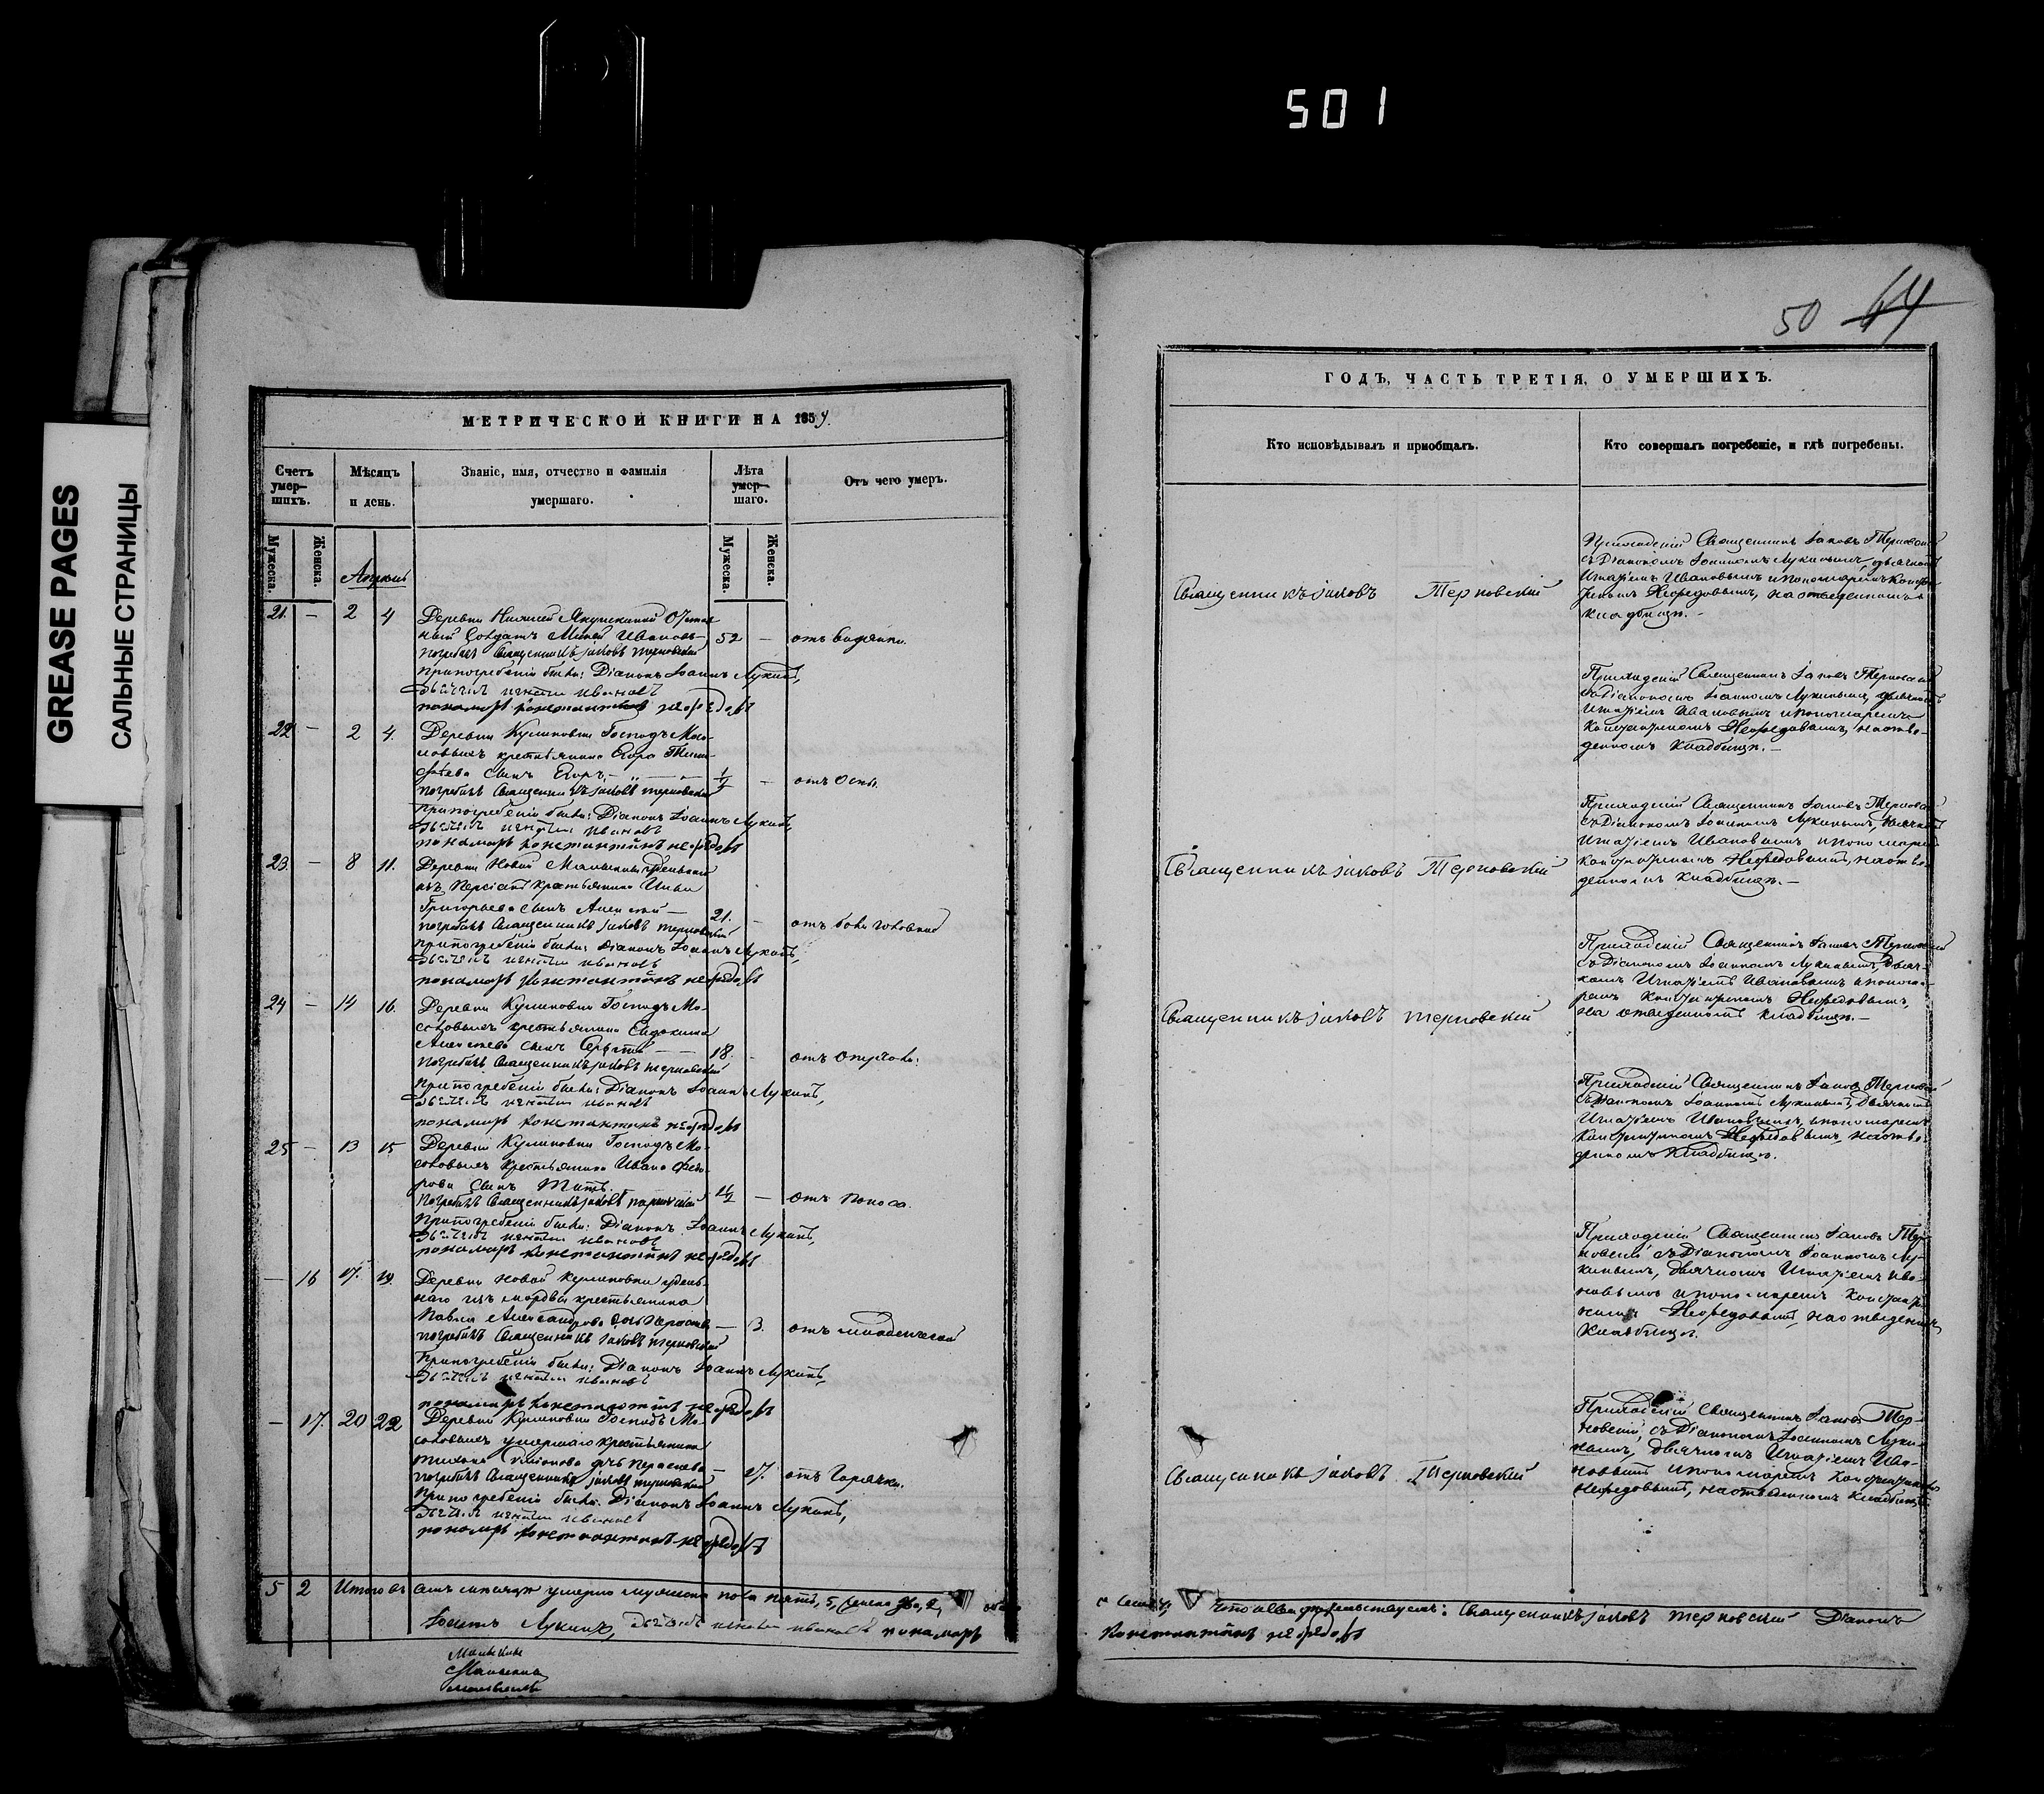 501
GREASE PAGES
САЛЬНЫЕ СТРАНИЦЫ
МЕТРИЧЕСКОЙ КНИГИ НА 1854
Счетъ умер-
шихъ.
Мѣсяцъ
и день.
Званіе, имя, отчество и фамилія
умершаго.
Лѣта
умер-
шаго.
Отъ чего умеръ.
Мужеска.
Женска.
Мужеска.
Женска.
Апрель
21. — 2 4 Деревни Нижней Якушкиной
ный Солдатъ Миней Ивановъ — 52 —
погребалъ Священникъ Іаковъ Терновскій
При погребеніи были: Діаконъ Іоаннъ Лукинъ,
дьячекъ Игнатій Ивановъ
пономарь Константинъ Нефедовъ
22 — 2 4. Деревни Куликовки Господъ Мо-
ловыхъ крестьянина Егора
сынъ Егоръ — 1/2 — отъ Оспы.
погребалъ Священникъ Іаковъ Терновскій
При погребеніи были: Діаконъ Іоаннъ Лукинъ,
дьячекъ Игнатій Ивановъ
пономарь Константинъ Нефедовъ
23 — 8 11. Деревни Новой
изъ крестьянина Ильи
Григорьева сынъ Алексей — 21. — отъ боли головной
погребалъ Священникъ Іаковъ Терновскій
При погребеніи были: Діаконъ Іоаннъ Лукинъ,
дьячекъ Игнатій Ивановъ
пономарь Константинъ Нефедовъ
24 — 14 16. Деревни Куликовки Господъ Мо-
соловыхъ крестьянина Евдокима
Алексеева сынъ — 18. —
погребалъ Священникъ Іаковъ Терновскій
При погребеніи были: Діаконъ Іоаннъ Лукинъ,
дьячекъ Игнатій Ивановъ
пономарь Константинъ Нефедовъ
25 — 13 15 Деревни Куликовки Господъ Мо-
соловыхъ крестьянина Ивана Фео-
рова сынъ Титъ. — отъ поноса.
погребалъ Священникъ Іаковъ Терновскій
При погребеніи были: Діаконъ Іоаннъ Лукинъ,
дьячекъ Игнатій Ивановъ
пономарь Константинъ Нефедовъ
— 16 17. 19. Деревни Новой Куликовки удѣль-
наго изъ мордвы крестьянина
Павла Александрова дочь — 3. отъ младенческой
погребалъ Священникъ Іаковъ Терновскій
При погребеніи были: Діаконъ Іоаннъ Лукинъ,
дьячекъ Игнатій Ивановъ
пономарь Константинъ Нефедовъ
— 17. 20 22 Деревни Куликовки Господъ Мо-
соловыхъ умершаго крестьянина
дочь — 27. отъ Горячки.
погребалъ Священникъ Іаковъ Терновскій
При погребеніи были: Діаконъ Іоаннъ Лукинъ,
дьячекъ Игнатій Ивановъ
пономарь Константинъ Нефедовъ
5 2 Итого въ семъ месяце умерло мужеска пола пять, 5, женска два, 2,
Іоаннъ Лукинъ, дьячекъ Игнатій Ивановъ пономарь
50 64
ГОДЪ, ЧАСТЬ ТРЕТІЯ, О УМЕРШИХЪ.
Кто исповѣдывалъ и пріобщалъ.
Кто совершалъ погребеніе, и гдѣ погребены.
Священникъ Іаковъ Терновскій
Приходскій Священникъ Іаковъ Терновскій
съ Діакономъ Іоанномъ Лукинымъ, дьячкомъ
Игнатіемъ Ивановымъ и пономаремъ Конста
Нефедовымъ, на отведенномъ
кладбище. —
Приходскій Священникъ Іаковъ Терновскій
съ Діакономъ Іоанномъ Лукинымъ, дьячкомъ
Игнатіемъ Ивановымъ и пономаремъ
Константиномъ Нефедовымъ, на отве-
денномъ кладбище. —
Священникъ Іаковъ Терновскій
Приходскій Священникъ Іаковъ Терновскій
съ Діакономъ Іоанномъ Лукинымъ, дьячкомъ
Игнатіемъ Ивановымъ и пономаремъ
Константиномъ Нефедовымъ, на отве-
денномъ кладбище. —
Священникъ Іаковъ Терновскій
Приходскій Священникъ Іаковъ Терновскій
съ Діакономъ Іоанномъ Лукинымъ, дьяч-
комъ Игнатіемъ Ивановымъ и понома-
ремъ Константиномъ Нефедовымъ,
на отведенномъ кладбище. —
Приходскій Священникъ Іаковъ Терновскій
съ Діакономъ Іоанномъ Лукинымъ, дьячкомъ
Игнатіемъ Ивановымъ, и пономаремъ
Константиномъ Нефедовымъ, на отве-
денномъ кладбище.
Приходскій Священникъ Іаковъ Тер-
новскій съ Діакономъ Іоанномъ Лу-
кинымъ, дьячкомъ Игнатіемъ Ива-
новымъ и пономаремъ Констан
Нефедовымъ, на отведенномъ
кладбище.
Священникъ Іаковъ Терновскій
Приходскій Священникъ Іаковъ Тер-
новскій, съ Діакономъ Іоанномъ Луки-
нымъ, дьячкомъ Игнатіемъ Ива-
новымъ и пономаремъ Константиномъ
Нефедовымъ, на отведенномъ кладбище
Что и свидетельствуемъ: Священникъ Іаковъ Терновскій Діаконъ
Константинъ Нефедовъ